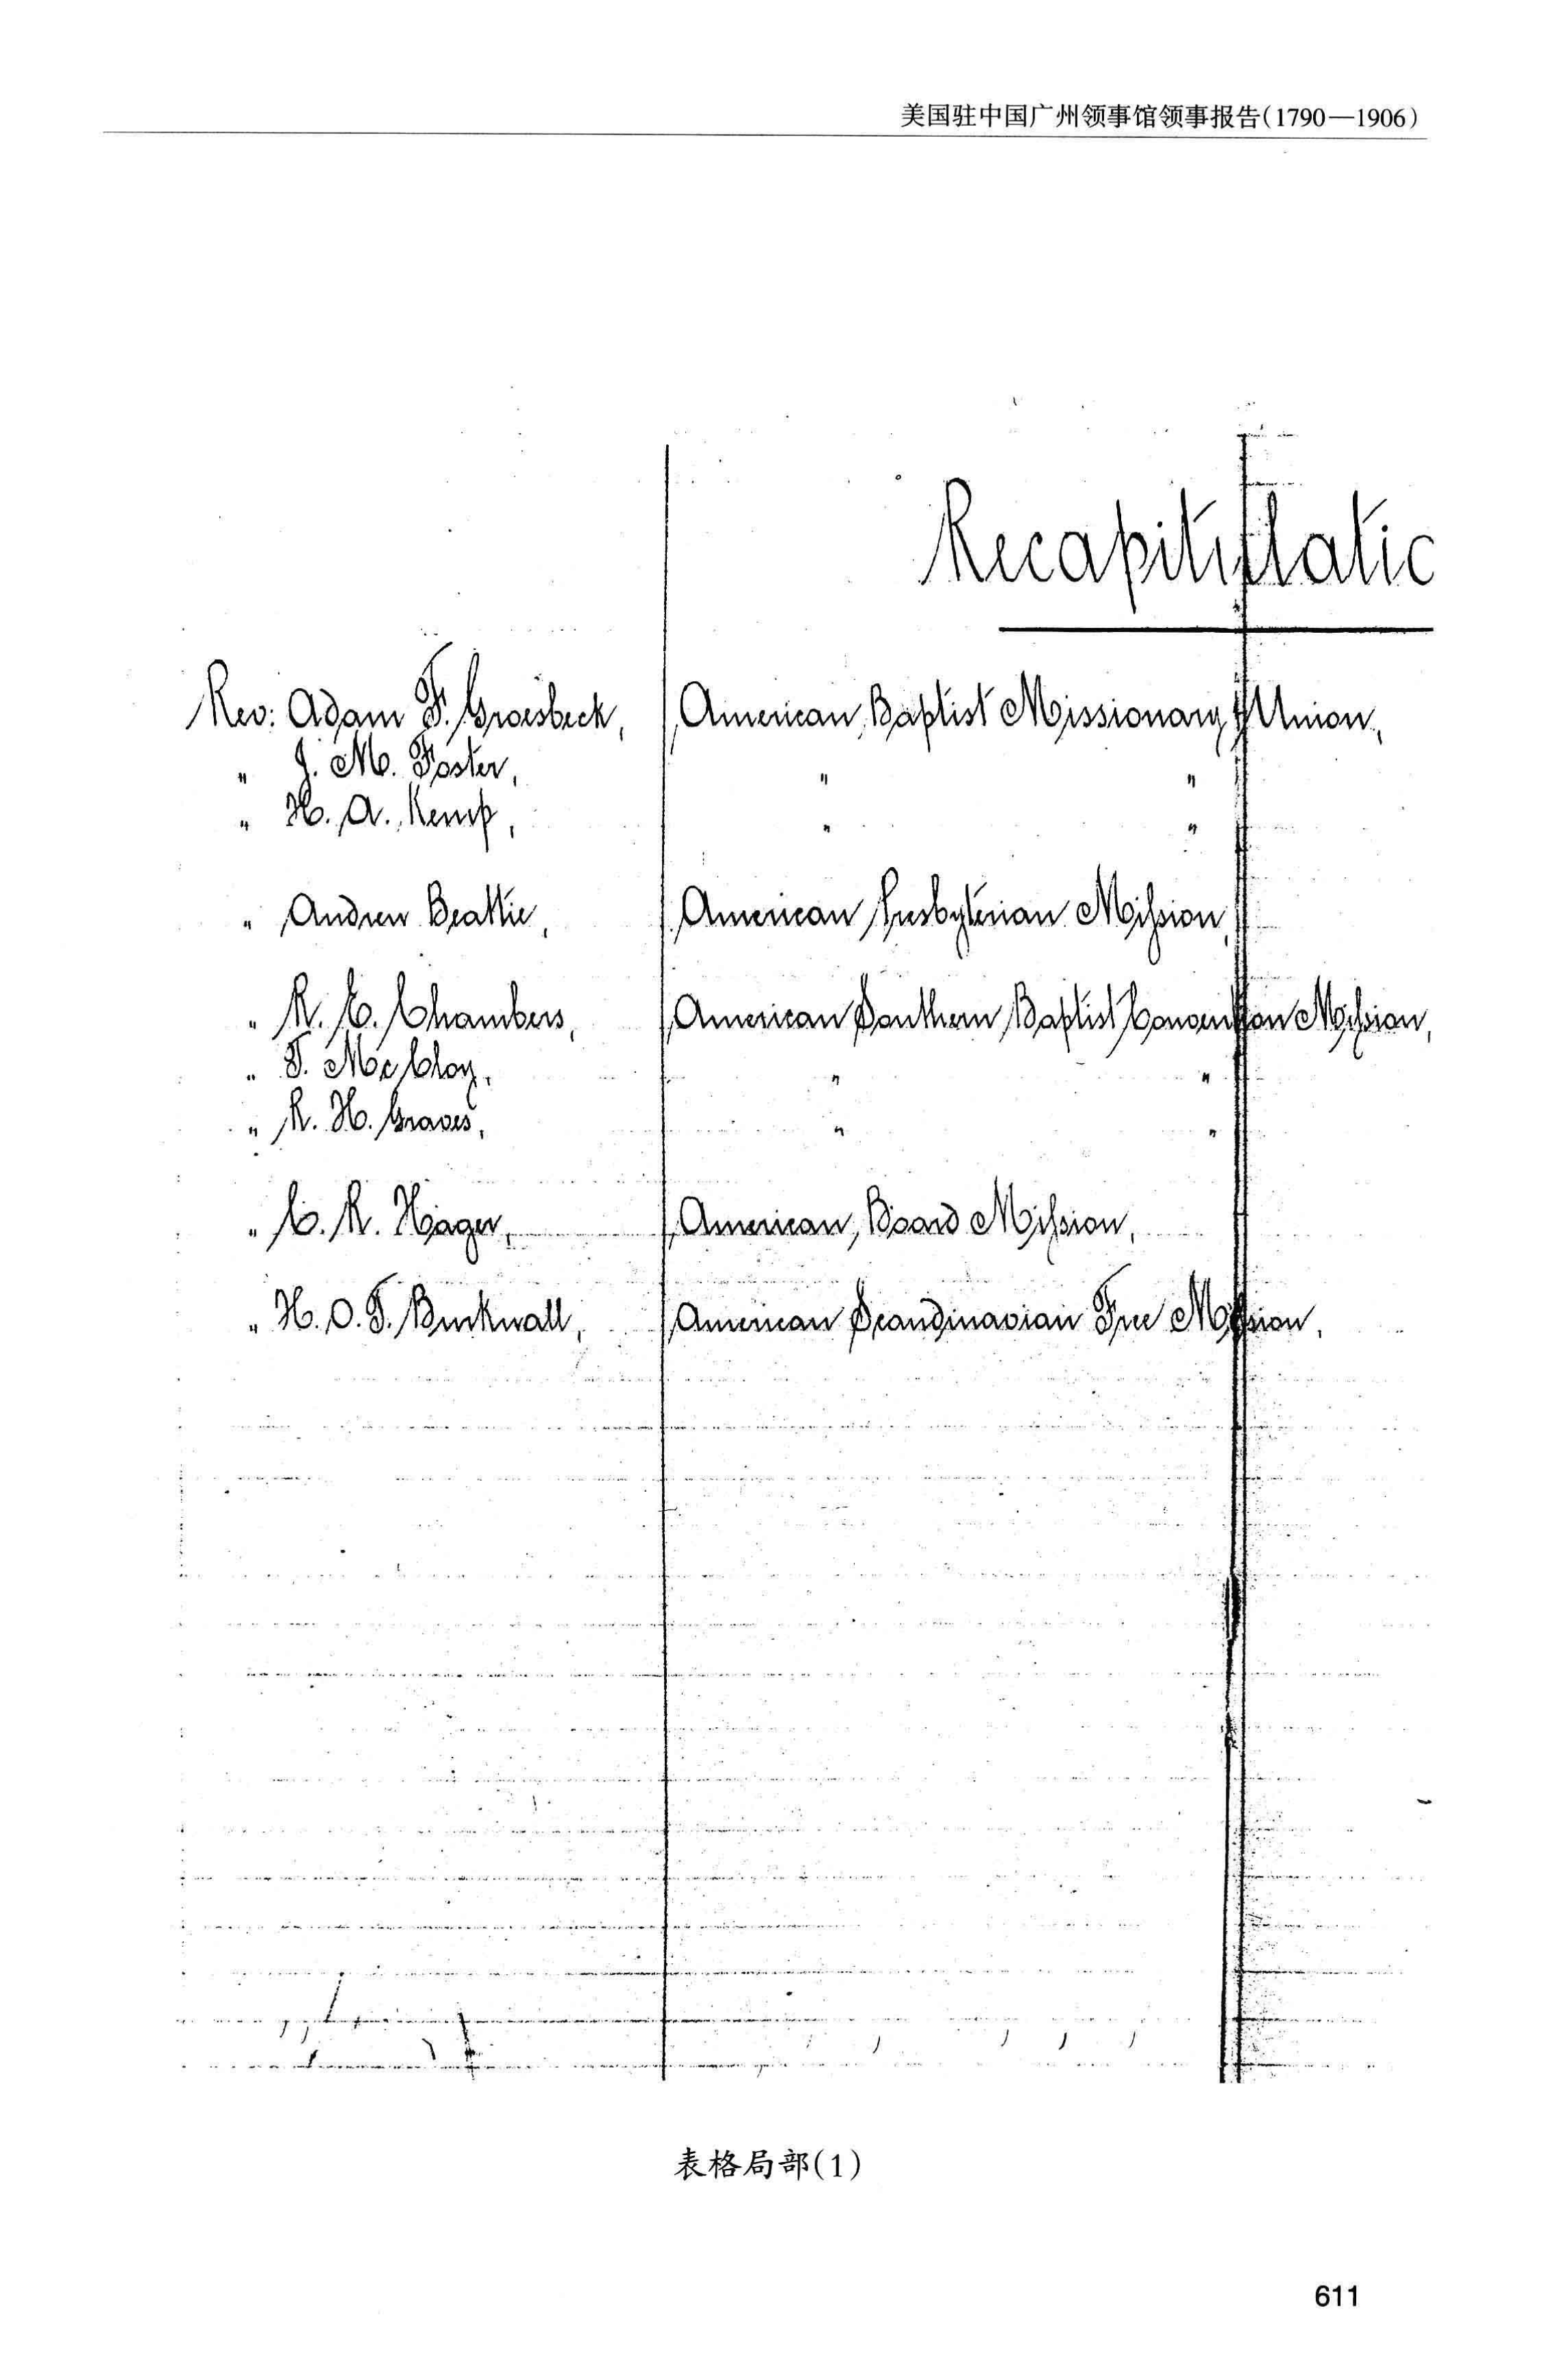 美国驻中国广州领事馆领事报告(1790—1906)
Recapitulatio
Rev: Adam F. Groesbeck, American Baptist Missionary Union,
" J. M. Foster, " "
" H. A. Kemp, " "
" Andrew Beattie, American Presbyterian Mission,
" R. E. Chambers, American Southern Baptist Convention Mission,
" T. McCloy, " "
" R. H. Graves, " "
" C. R. Hager, American Board Mission,
" H. O. T. Burkwall, American Scandinavian Free Mission,
表格局部(1)
611